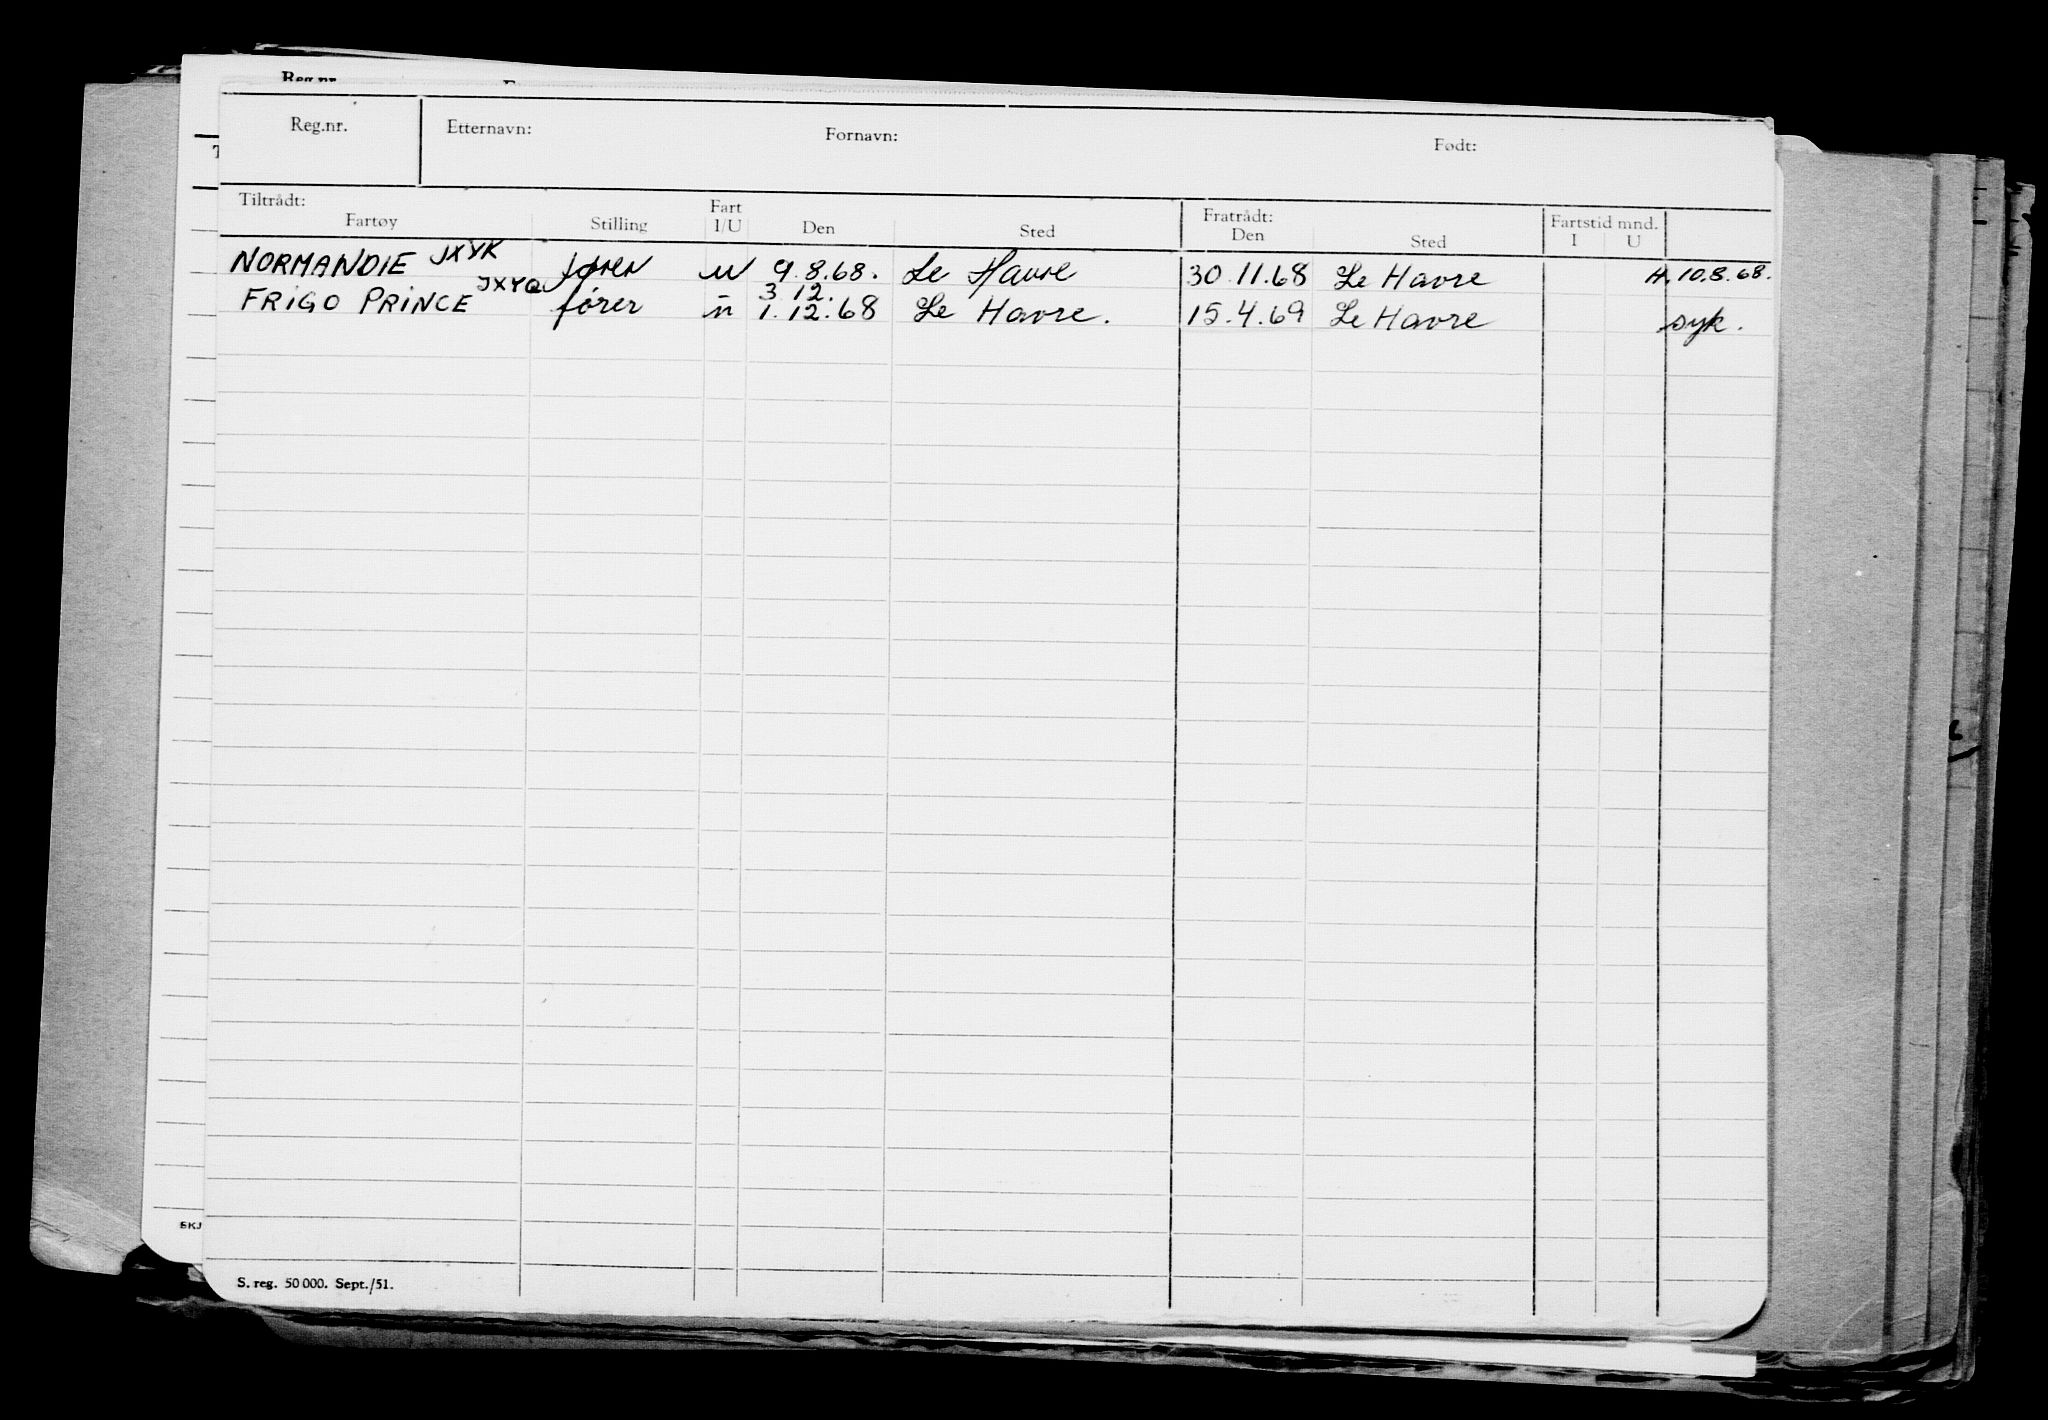 Reg.nr.
Reg.nr. Etternavn: Fornavn: Født:
Tiltrådt: Fratrådt:
Fartøy Stilling Fart I/U Den Sted Den Sted Fartstid mnd. I U
NORMANDIE JXYK fører u 9.8.68. Le Havre 30.11.68 Le Havre H. 10.8.68.
3.12.
FRIGO PRINCE JXYQ fører u 1.12.68 Le Havre. 15.4.69 Le Havre syk.
SKJ
S. reg. 50 000. Sept./51.